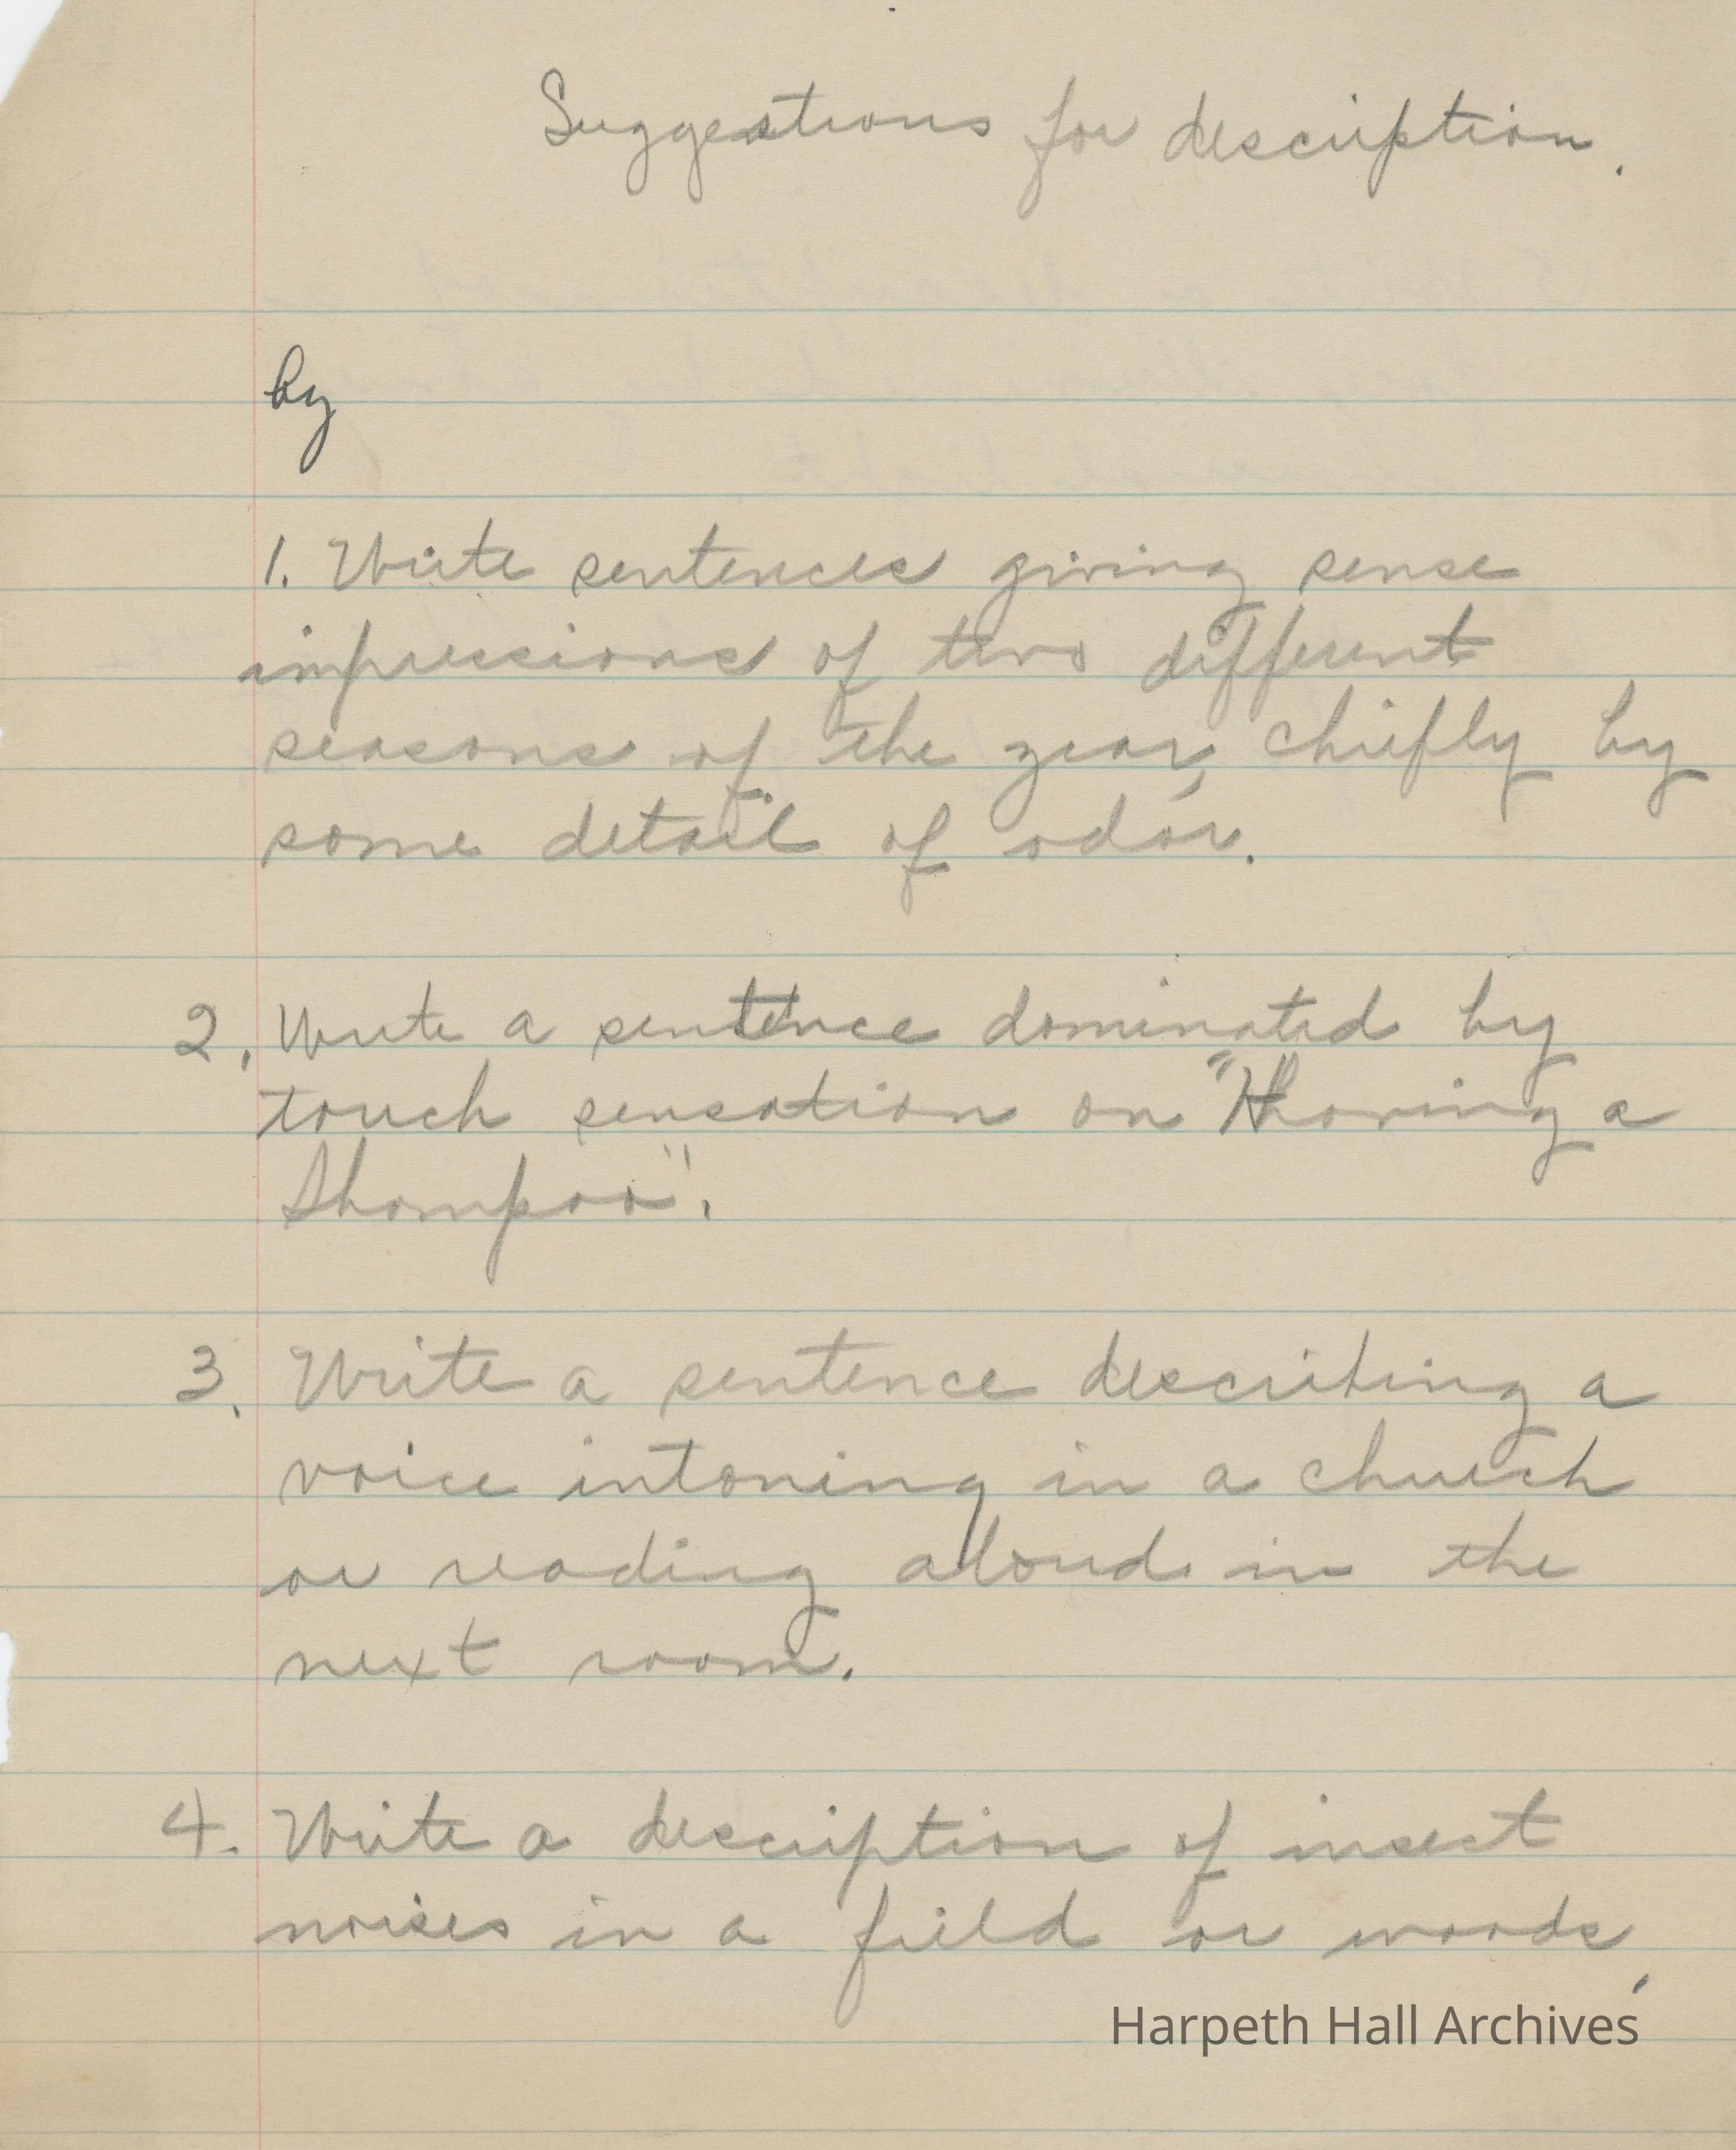 Suggestions for description.
by
1. Write sentences giving sense
impressions of two different
seasons of the year, chiefly by
some detail of odor.
2. Write a sentence dominated by
touch sensation on "Having a
Shampoo".
3. Write a sentence describing a
voice intoning in a church
or reading aloud in the
next room.
4. Write a description of insect
noises in a field or woods.
Harpeth Hall Archives